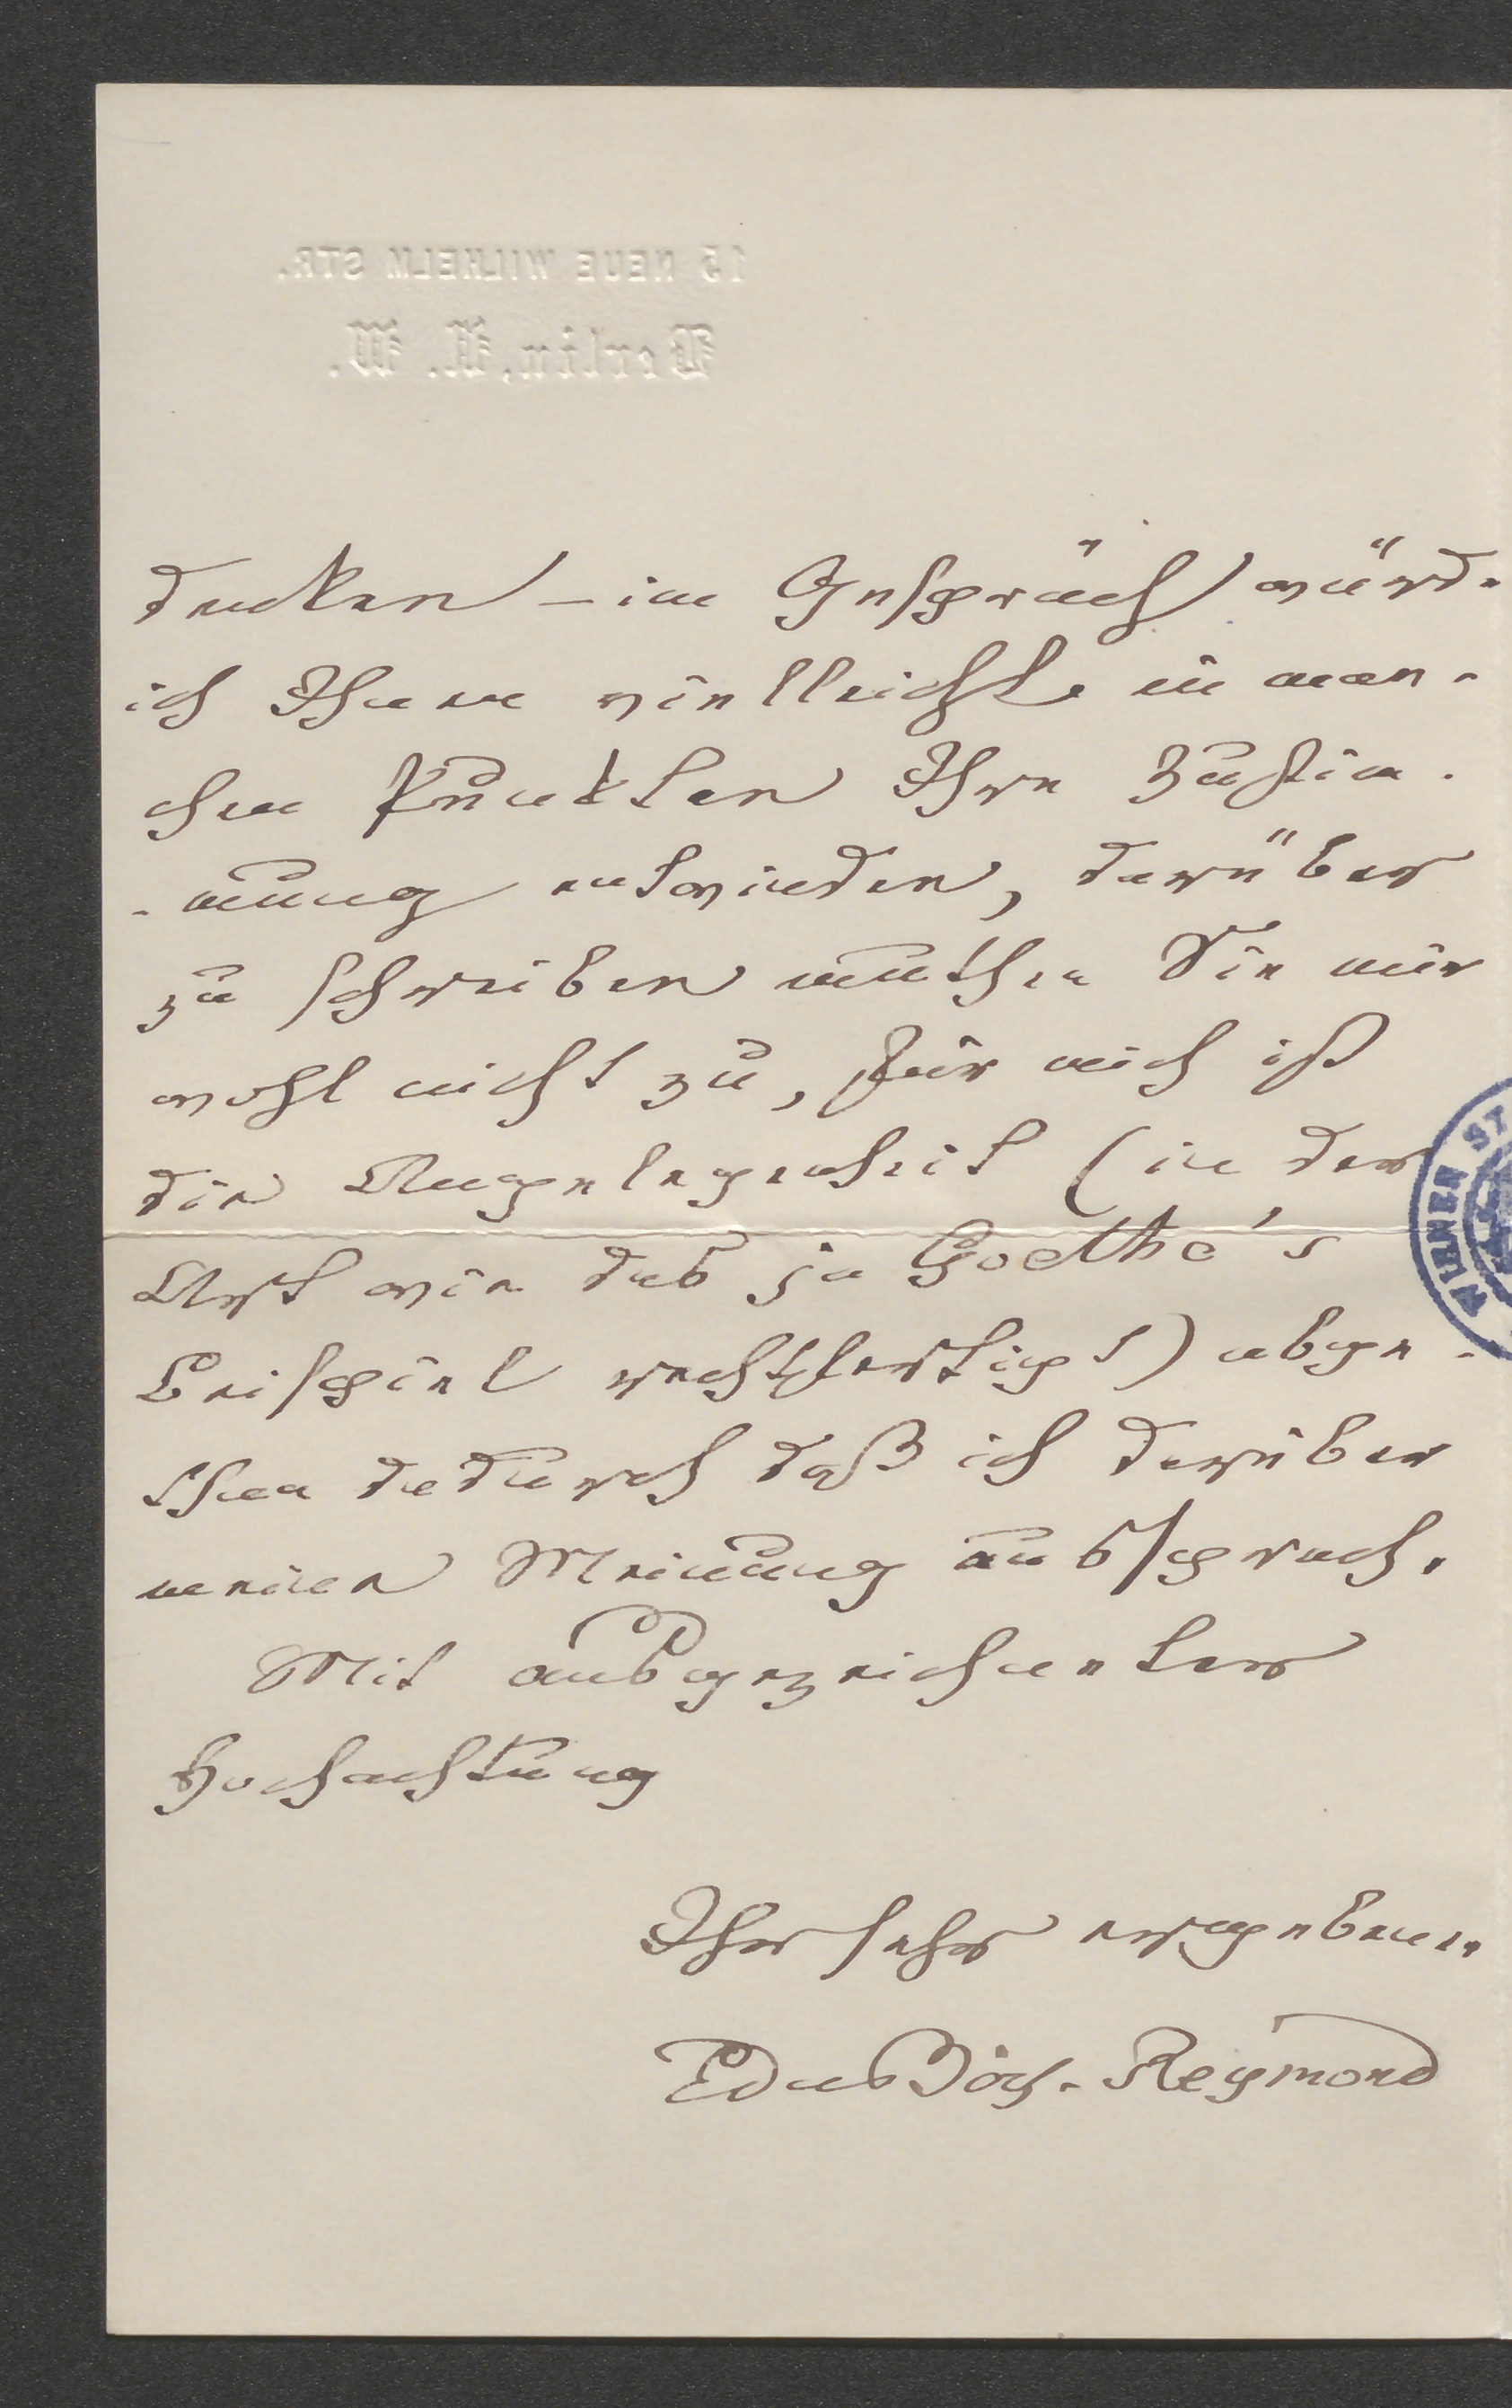 15 NEUE WILHELM STR.
Berlin, N. W.
danken – im Gespräch würde
ich Ihnen vielleicht in man-
chen Punkten Ihre Zustim-
-mung entwinden, darüber
zu schreiben muthen Sie mir
wohl nicht zu, für mich ist
die Angelegenheit (in der
Art wie das ja Goethe's
Beispiel rechtfertigt) abge-
than dadurch daß ich darüber
meine Meinung aussprach.
Mit ausgezeichneter
Hochachtung
Ihr sehr ergebener
EduBois-Reymond
WIENER ST